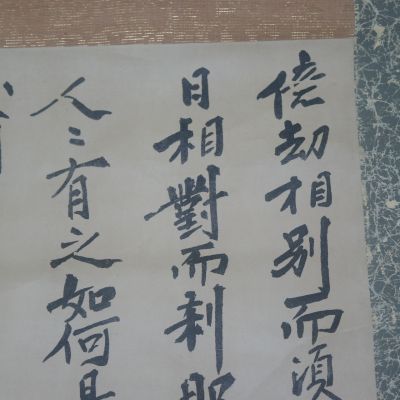 億劫相別而須
日相對而刹那
人〻有之如何是